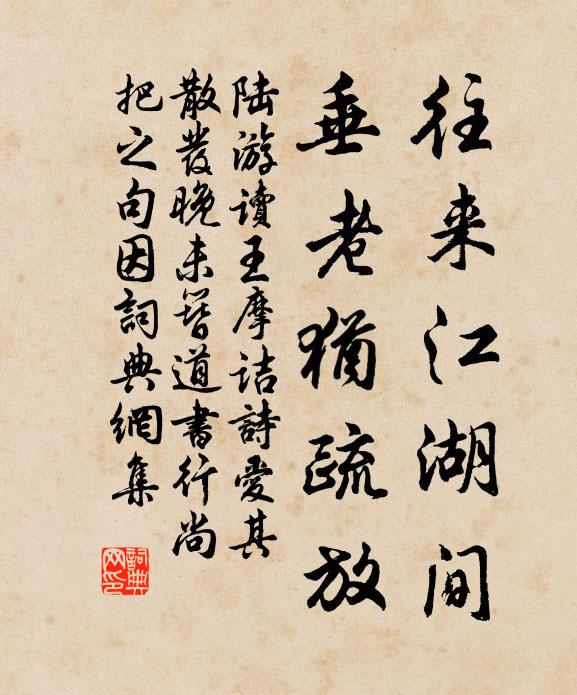 往来江湖间
垂老犹疏放
陆游读王摩诘詩愛其
散發晚未簪道書行尚
把之句因詞典網集
詞典网印